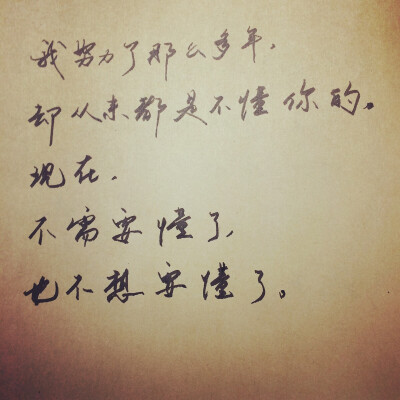 我努力了那么多年，
却从来都是不懂你的。
现在，
不需要懂了，
也不想要懂了。